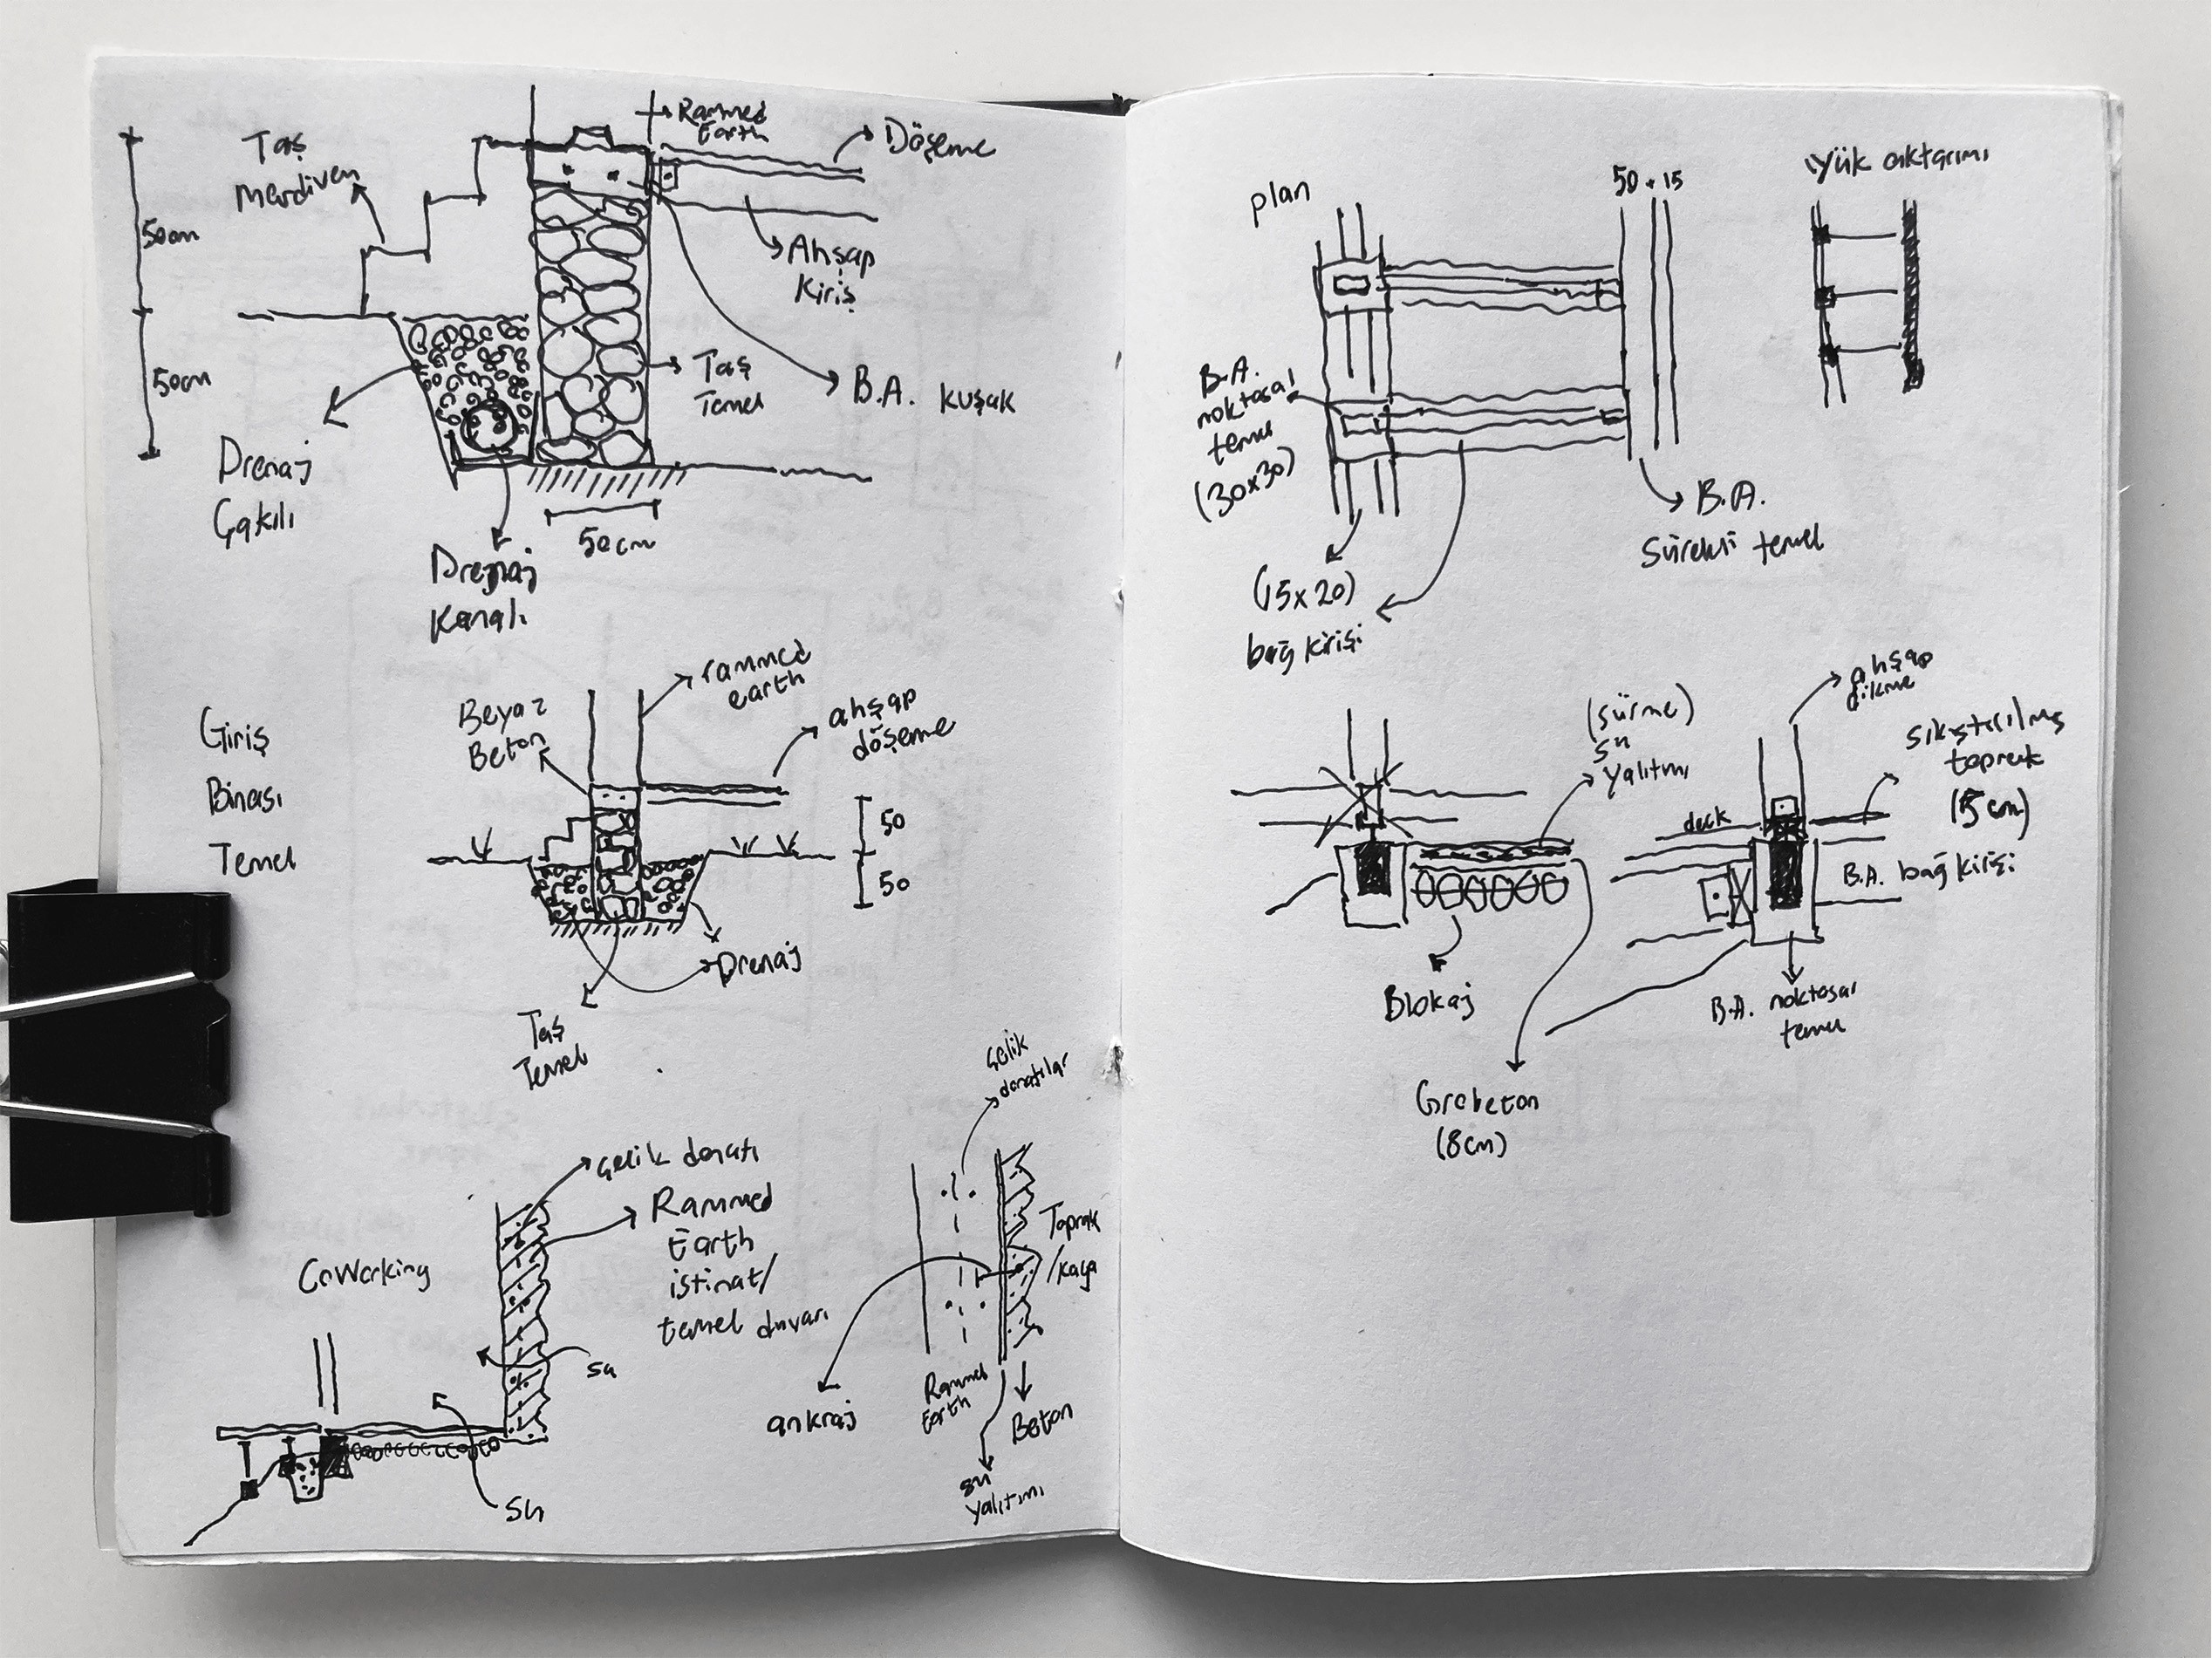 Taş
Merdiven
50cm
50cm
Drenaj
Çakılı
Drenaj
Kanalı
50cm
Rammed
Earth
Döşeme
Ahşap
Kiriş
Taş
Temel
B.A. kuşak
Giriş
Binası
Temel
Beyaz
Beton
rammed
earth
ahşap
döşeme
50
50
Drenaj
Taş
Temel
CoWorking
çelik donatı
Rammed
Earth
istinat/
temel duvarı
su
su
çelik
donatılar
Toprak
/kaya
ankraj
Rammed
Earth
Beton
su
yalıtımı
plan
50+15
yük aktarımı
B.A.
noktasal
temel
(30x30)
(15x20)
bağ kirişi
B.A.
Sürekli temel
(sürme)
su
yalıtımı
Blokaj
Grobeton
(8cm)
ahşap
dikme
sıkıştırılmış
toprak
(15cm)
deck
B.A. bağ kirişi
B.A. noktasal
temel